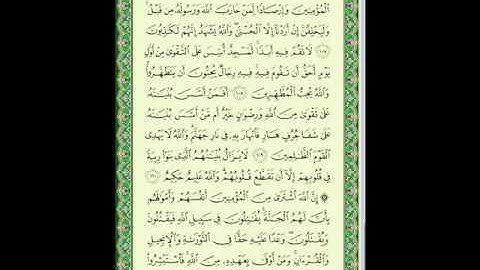 ٱلْمُؤْمِنِينَ وَإِرْصَادًا لِّمَنْ حَارَبَ ٱللَّهَ وَرَسُولَهُۥ مِن قَبْلُ
وَلَيَحْلِفُنَّ إِنْ أَرَدْنَآ إِلَّا ٱلْحُسْنَىٰ وَٱللَّهُ يَشْهَدُ إِنَّهُمْ لَكَٰذِبُونَ
١٠٧ لَا تَقُمْ فِيهِ أَبَدًا لَّمَسْجِدٌ أُسِّسَ عَلَى ٱلتَّقْوَىٰ مِنْ أَوَّلِ
يَوْمٍ أَحَقُّ أَن تَقُومَ فِيهِ فِيهِ رِجَالٌ يُحِبُّونَ أَن يَتَطَهَّرُوا۟
وَٱللَّهُ يُحِبُّ ٱلْمُطَّهِّرِينَ ١٠٨ أَفَمَنْ أَسَّسَ بُنْيَٰنَهُۥ
عَلَىٰ تَقْوَىٰ مِنَ ٱللَّهِ وَرِضْوَٰنٍ خَيْرٌ أَم مَّنْ أَسَّسَ بُنْيَٰنَهُۥ
عَلَىٰ شَفَا جُرُفٍ هَارٍ فَٱنْهَارَ بِهِۦ فِى نَارِ جَهَنَّمَ وَٱللَّهُ لَا يَهْدِى
ٱلْقَوْمَ ٱلظَّٰلِمِينَ ١٠٩ لَا يَزَالُ بُنْيَٰنُهُمُ ٱلَّذِى بَنَوْا۟ رِيبَةً
فِى قُلُوبِهِمْ إِلَّآ أَن تَقَطَّعَ قُلُوبُهُمْ وَٱللَّهُ عَلِيمٌ حَكِيمٌ ١١٠
۞ إِنَّ ٱللَّهَ ٱشْتَرَىٰ مِنَ ٱلْمُؤْمِنِينَ أَنفُسَهُمْ وَأَمْوَٰلَهُم
بِأَنَّ لَهُمُ ٱلْجَنَّةَ يُقَٰتِلُونَ فِى سَبِيلِ ٱللَّهِ فَيَقْتُلُونَ
وَيُقْتَلُونَ وَعْدًا عَلَيْهِ حَقًّا فِى ٱلتَّوْرَىٰةِ وَٱلْإِنجِيلِ
وَٱلْقُرْءَانِ وَمَنْ أَوْفَىٰ بِعَهْدِهِۦ مِنَ ٱللَّهِ فَٱسْتَبْشِرُوا۟